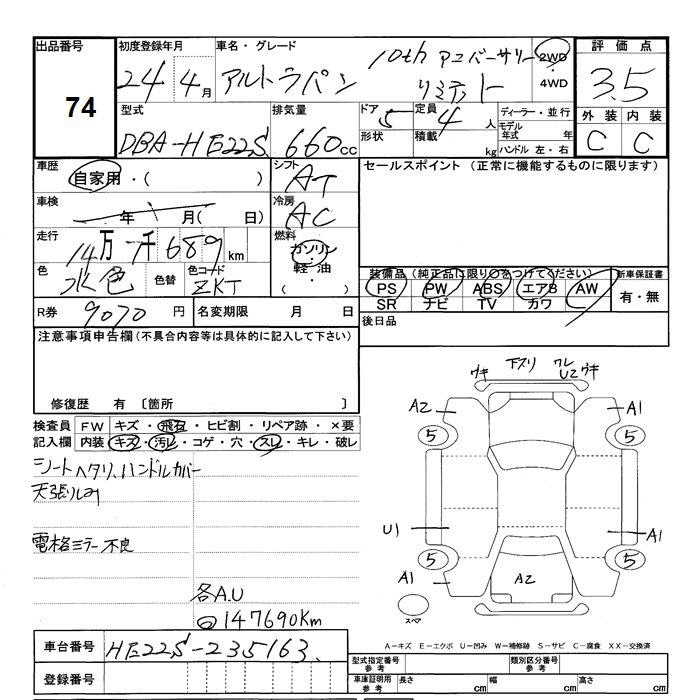 出品番号 初度登録年月 車名・グレード 評価点
74 24 4月 アルトラパン 10th アニバーサリー リミテッド 2WD・4WD 3.5
型式 排気量 ドア 5 定員 4人 ディーラー・並行 外装 内装
DBA-HE22S 660cc 形状 積載 kg モデル年式 年 ハンドル 左・右 C C
車歴 自家用・( ) シフト AT セールスポイント (正常に機能するものに限ります)
車検 年 月( 日) 冷房 AC
走行 14万7千689km 燃料 ガソリン・軽油・( )
色 水色 色替 色コード ZKT
装備品 (純正品に限り○をつけてください) 新車保証書
PS PW ABS エアB AW 有・無
SR ナビ TV カワ
R券 9070円 名変期限 月 日 後日品
注意事項申告欄(不具合内容等は具体的に記入して下さい)
修復歴 有 〔箇所 〕
検査員 FW キズ・飛石・ヒビ割・リペア跡・×要
記入欄 内装 キズ・汚レ・コゲ・穴・スレ・キレ・破レ
シートヘタリ、ハンドルカバー
天張りしみ
電格ミラー不良
各A.U
147690Km
ウキ 下スリ ワレ U2 ウキ
A2 A1
5 5
U1 A1
5 5
A1 A2
スペア
A-キズ E-エクボ U-凹み W-補修跡 S-サビ C-腐食 XX-交換済
車台番号 HE22S-235163
登録番号
型式指定番号 参考 類別区分番号 参考
車庫証明用 参考 長さ cm 幅 cm 高さ cm